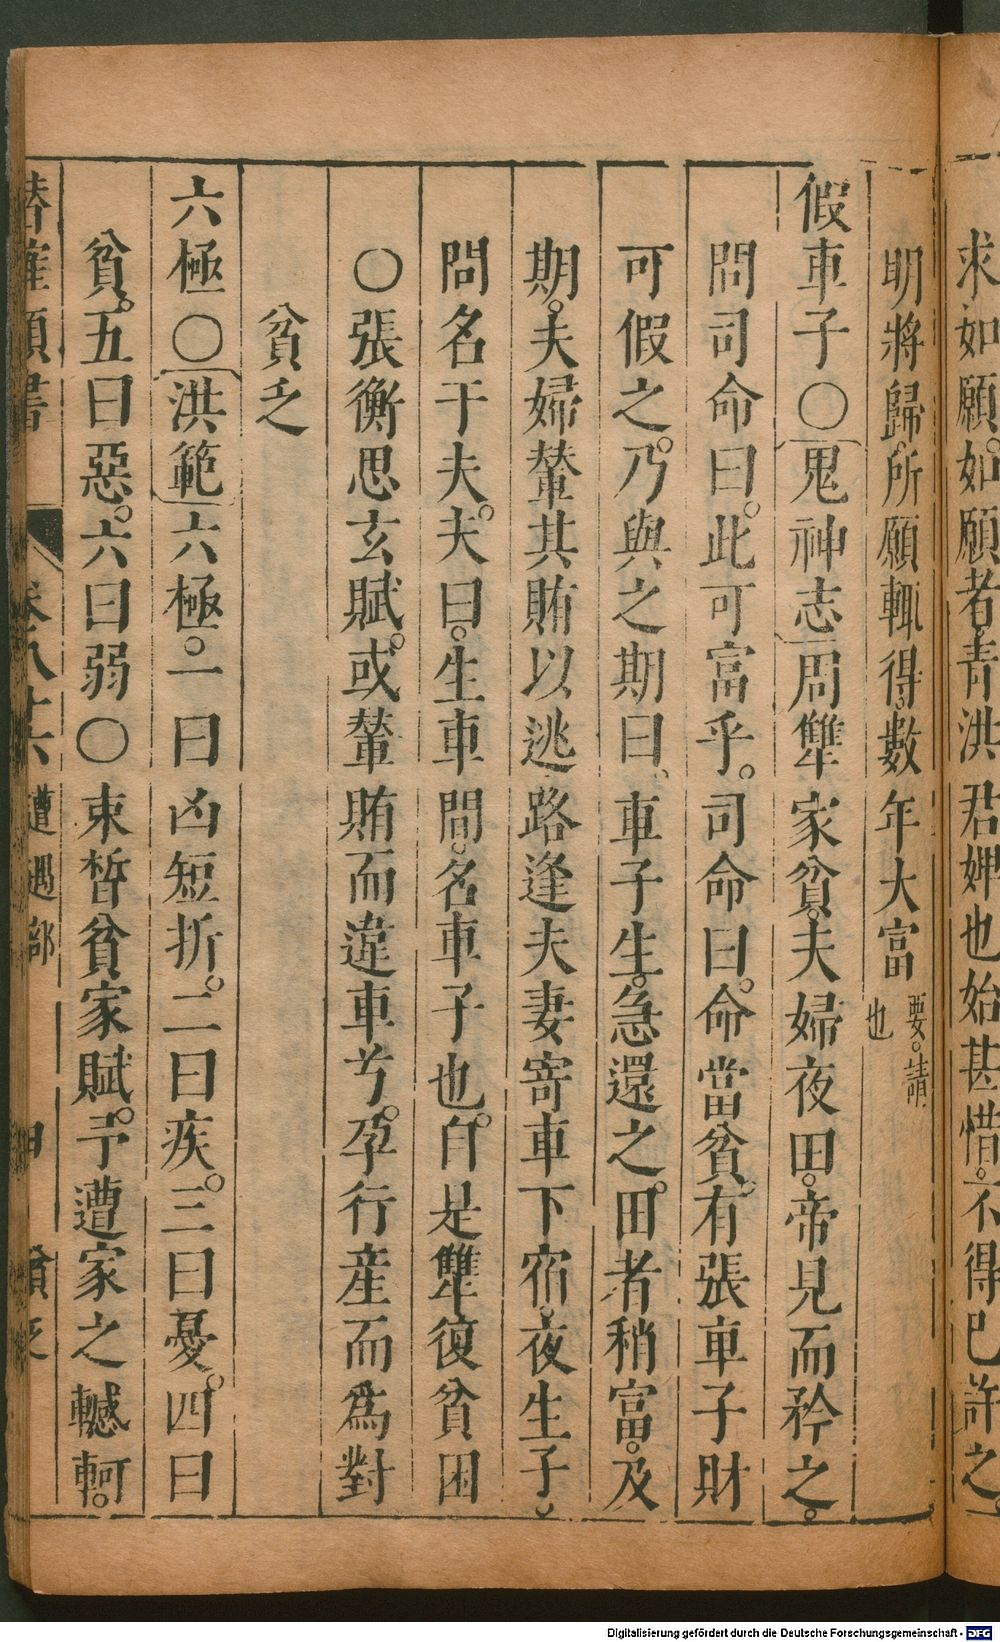 求如願。如願者青洪君婢也始甚惜。不得已許之。
明將歸。所願輒得。數年大富要。請也
假車子〇鬼神志周犨家貧。夫婦夜田。帝見而矜之。
問司命曰。此可富乎。司命曰。命當貧。有張車子財
可假之。乃與之期曰、車子生。急還之。田者稍富。及
期。夫婦輦其賄以逃路逢夫妻寄車下宿。夜生子、
問名于夫。夫曰。生車間。名車子也。自是犨復貧困
〇張衡思玄賦。或輦賄而違車兮。孕行產而為對
貧乏
六極〇洪範六極。一曰凶短折。二曰疾。三曰憂。四曰
貧。五曰惡。六曰弱〇束晳貧家賦。予遭家之轗軻。
類書 卷八十六 遭遇部 貧乏
Digitalisierung gefördert durch die Deutsche Forschungsgemeinschaft - DFG